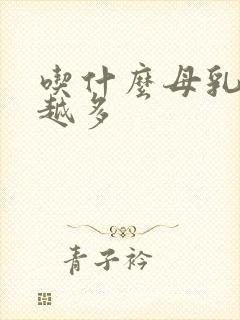 喫什麼母乳
越多
青子衿